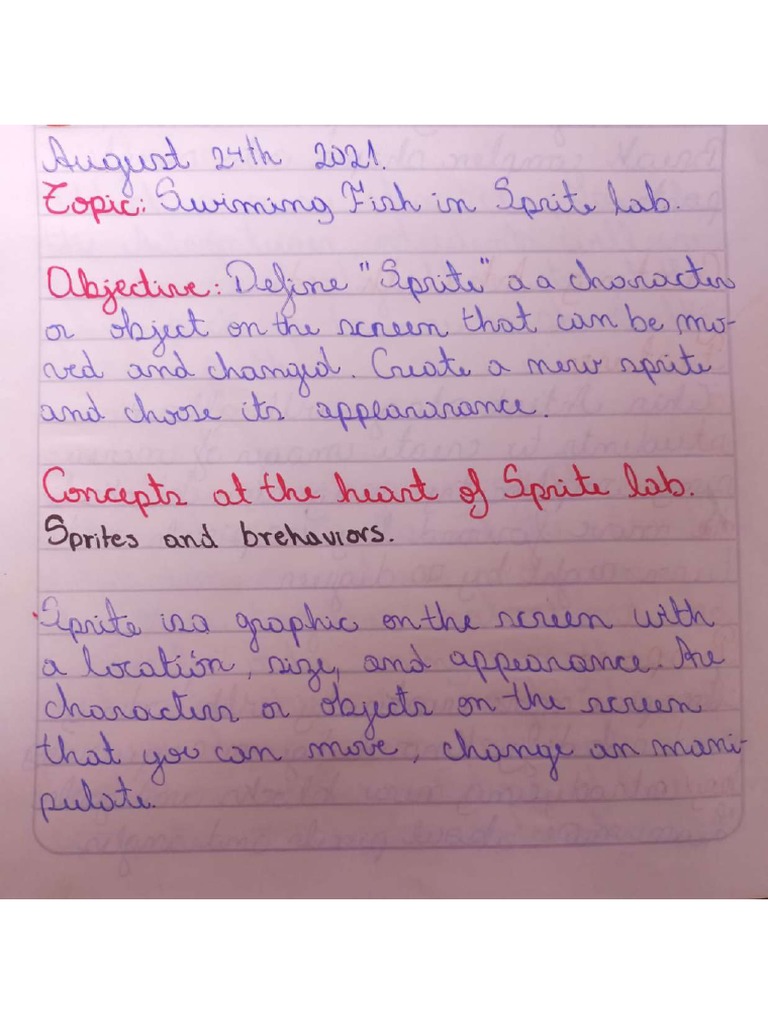 August 24th 2021.
Topic: Swiming Fish in Sprite lab.
Objective: Define "Sprite" a a character
or object on the screen that can be mo-
ved and changed. Create a new sprite
and choose its appeararance.
Concepts at the heart of Sprite lab.
Sprites and brehaviors.
Sprite is a graphic on the screen with
a locatión, size, and appearance. Are
characters or objects on the screen
that you can move, change an mani-
pulate.